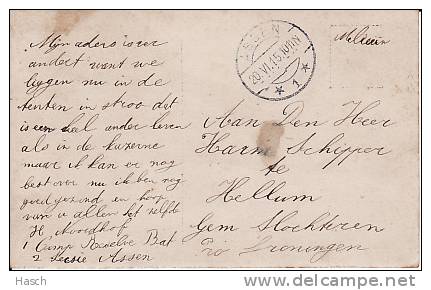 Mijn adres is ver
andert want we
leggen nu in de
tenten in stroo dat
is een heel ander leven
als in de kazerne
maar ik kan er nog
best over nu ik ben nog
goed gezond en hoop
van u allen het zelfde
H Noordhof
1 Comp Reserve Bat
2 Sectie Assen
ASSEN
20.VI.15.10-11N
* 1 *
Aan Den Heer
Harm Schipper
te
Hellum
Gem Slochteren
Pro Groningen
Hasch
delcampe.net